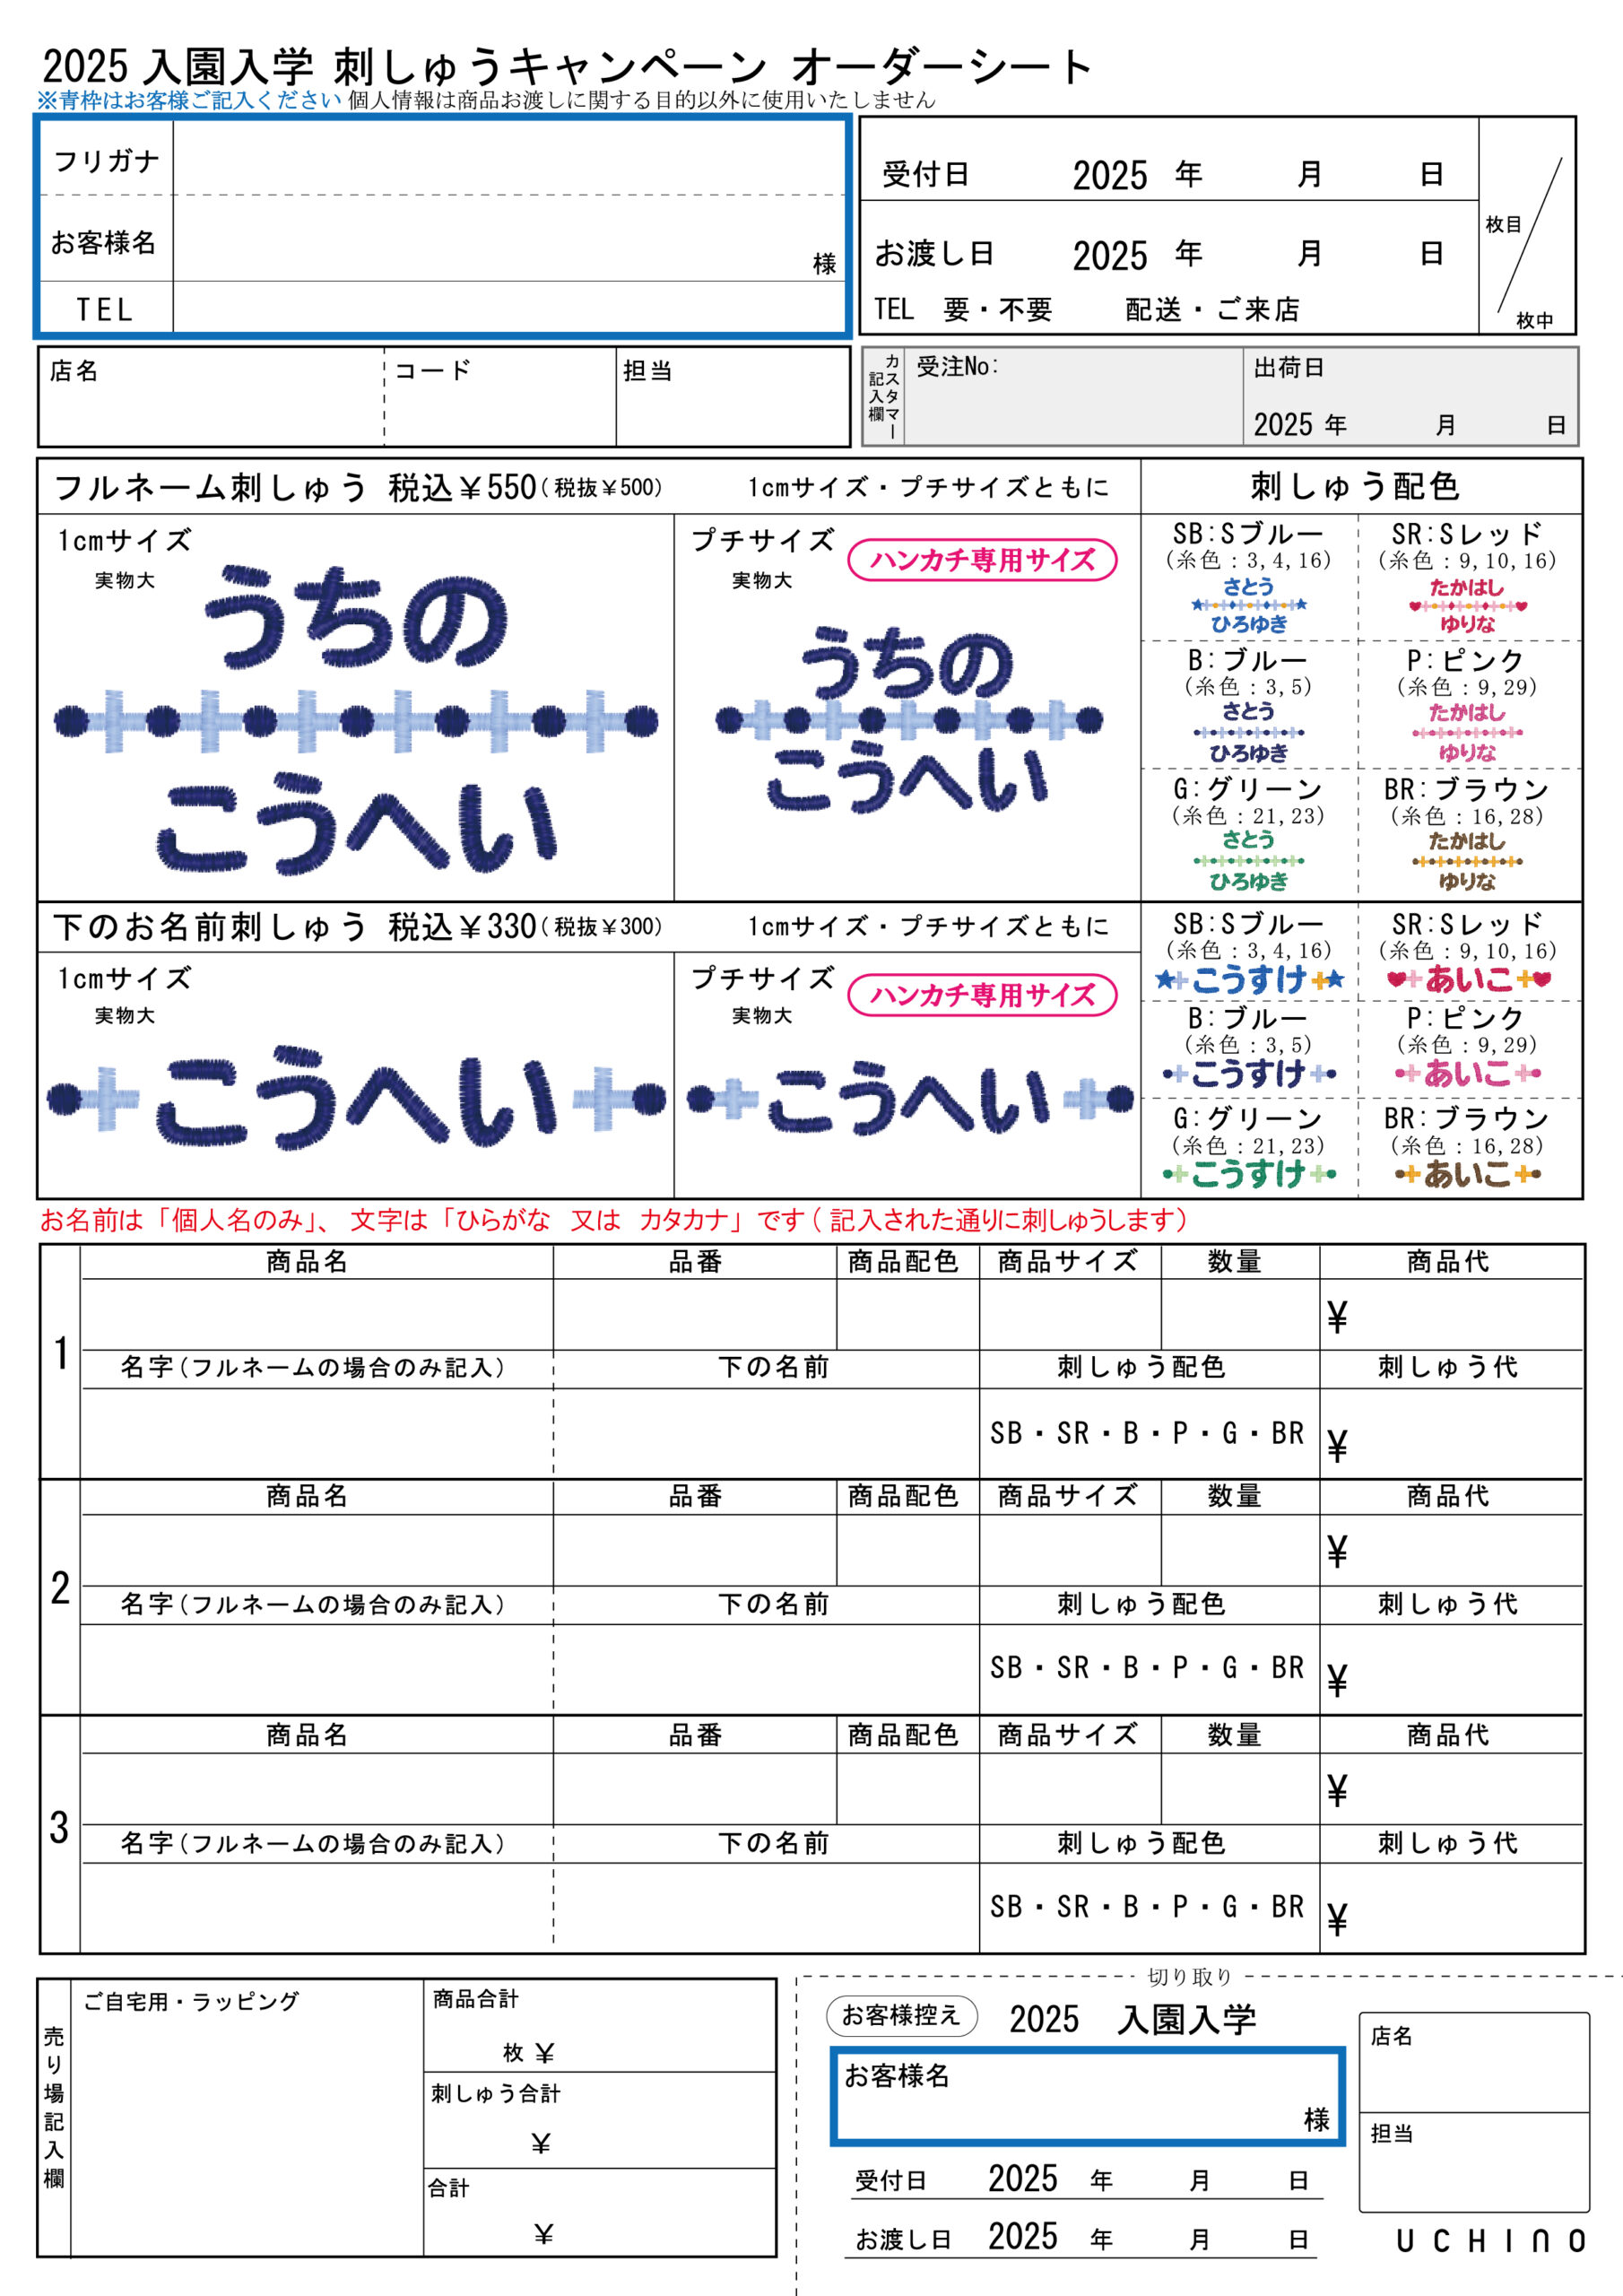 2025 入園入学 刺しゅうキャンペーン オーダーシート
※青枠はお客様ご記入ください 個人情報は商品お渡しに関する目的以外に使用いたしません
フリガナ
お客様名
様
TEL
受付日 2025 年 月 日
お渡し日 2025 年 月 日
TEL 要・不要 配送・ご来店
枚目
枚中
店名
コード
担当
カスタマー記入欄
受注No:
出荷日
2025 年 月 日
フルネーム刺しゅう 税込¥550(税抜¥500) 1cmサイズ・プチサイズともに
1cmサイズ
実物大
うちの
こうへい
プチサイズ
ハンカチ専用サイズ
実物大
うちの
こうへい
刺しゅう配色
SB:Sブルー
(糸色:3,4,16)
さとう
ひろゆき
SR:Sレッド
(糸色:9,10,16)
たかはし
ゆりな
B:ブルー
(糸色:3,5)
さとう
ひろゆき
P:ピンク
(糸色:9,29)
たかはし
ゆりな
G:グリーン
(糸色:21,23)
さとう
ひろゆき
BR:ブラウン
(糸色:16,28)
たかはし
ゆりな
下のお名前刺しゅう 税込¥330(税抜¥300) 1cmサイズ・プチサイズともに
1cmサイズ
実物大
こうへい
プチサイズ
ハンカチ専用サイズ
実物大
こうへい
SB:Sブルー
(糸色:3,4,16)
こうすけ
SR:Sレッド
(糸色:9,10,16)
あいこ
B:ブルー
(糸色:3,5)
こうすけ
P:ピンク
(糸色:9,29)
あいこ
G:グリーン
(糸色:21,23)
こうすけ
BR:ブラウン
(糸色:16,28)
あいこ
お名前は「個人名のみ」、文字は「ひらがな 又は カタカナ」です(記入された通りに刺しゅうします)
1
商品名 品番 商品配色 商品サイズ 数量 商品代
¥
名字(フルネームの場合のみ記入) 下の名前 刺しゅう配色 刺しゅう代
SB・SR・B・P・G・BR ¥
2
商品名 品番 商品配色 商品サイズ 数量 商品代
¥
名字(フルネームの場合のみ記入) 下の名前 刺しゅう配色 刺しゅう代
SB・SR・B・P・G・BR ¥
3
商品名 品番 商品配色 商品サイズ 数量 商品代
¥
名字(フルネームの場合のみ記入) 下の名前 刺しゅう配色 刺しゅう代
SB・SR・B・P・G・BR ¥
売り場記入欄
ご自宅用・ラッピング
商品合計
枚 ¥
刺しゅう合計
¥
合計
¥
切り取り
お客様控え 2025 入園入学
お客様名
様
受付日 2025 年 月 日
お渡し日 2025 年 月 日
店名
担当
UCHINO